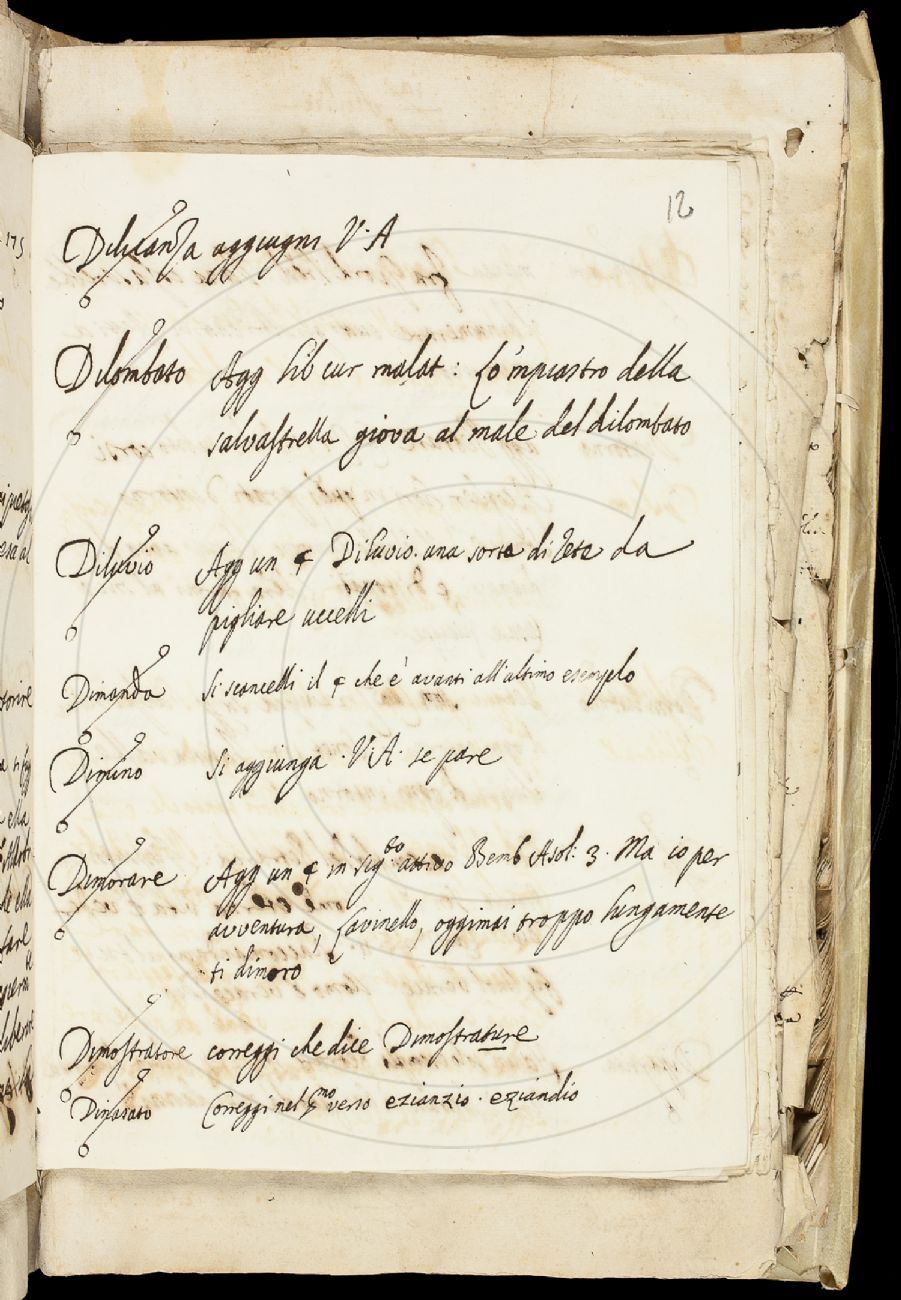 12
Dilicanza aggiugni V. A
Dilombato Agg Lib cur malat: Lo 'mpiastro della
salvastrella giova al male del dilombato
Diluvio Agg un ¶ Diluvio. una sorte di rete da
pigliare uccelli
Dimanda Si scancelli il ¶ che è avanti all'ultimo esemplo
Dimino Si aggiunga . V. A. se pare
Dimorare Agg un ¶ in sig.to attivo Bemb Asol: 3. Ma io per
avventura, Lavinello, oggimai troppo lungamente
ti dimoro
Dimostratore correggi che dice Dimostrature
Correggi nel 5.mo verso ezianzio . eziandio